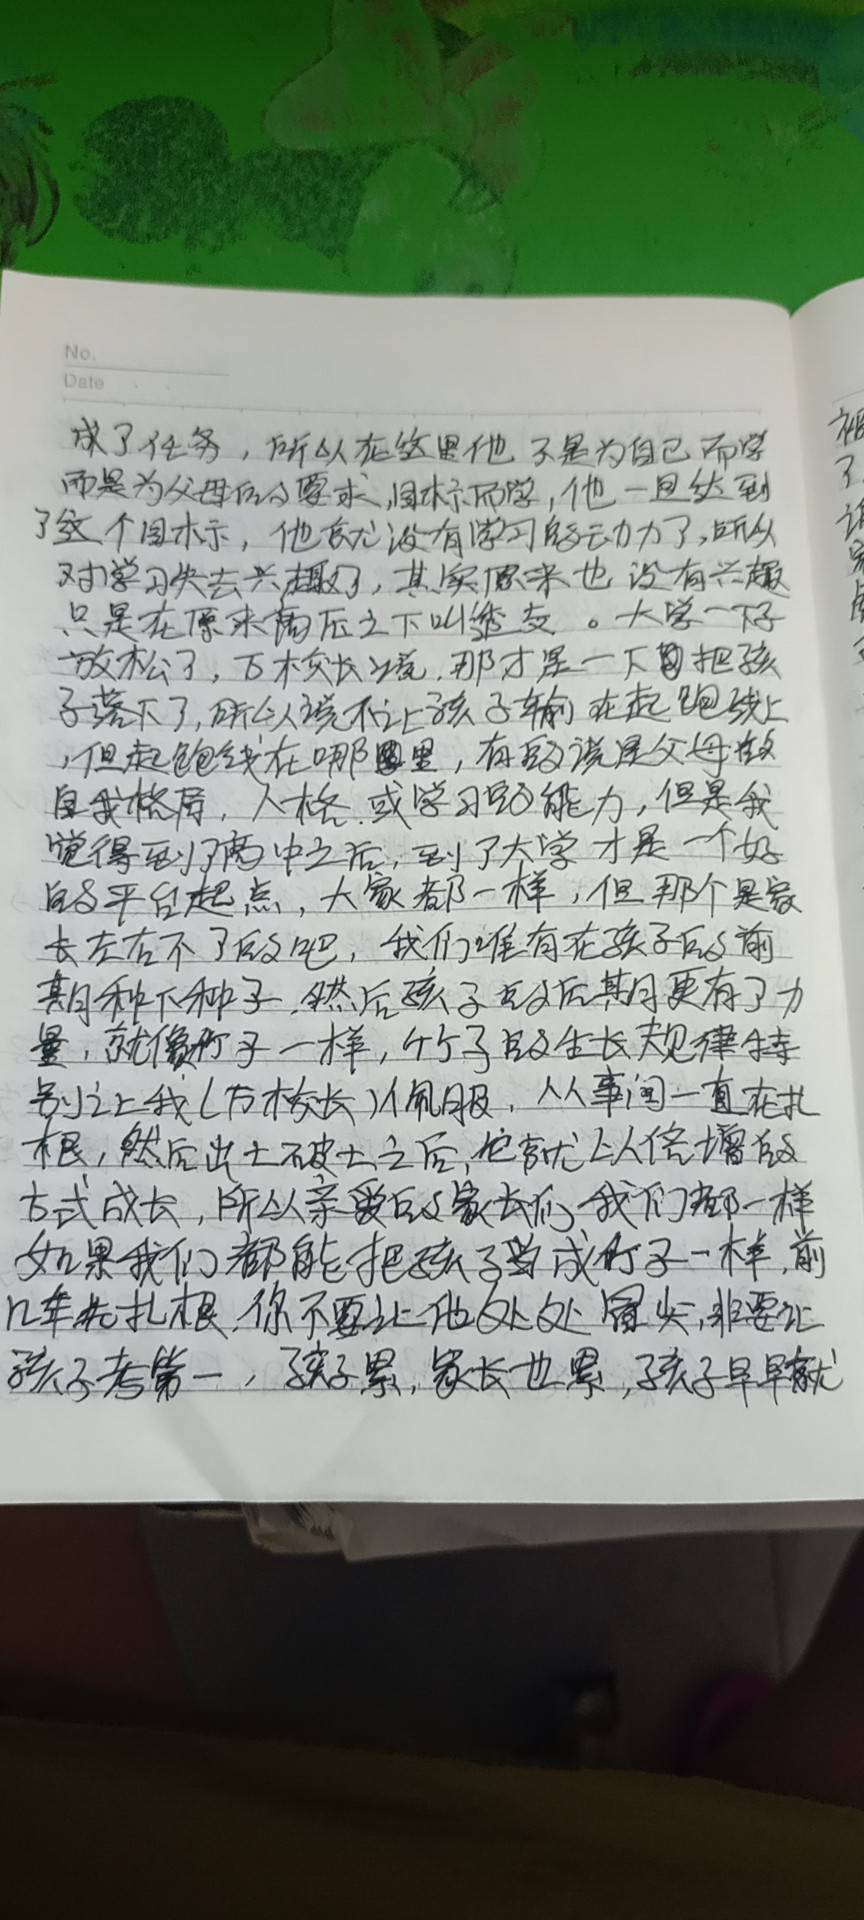 No.
Date
成了任务，所以在这里他不是为自己而学
而是为父母的要求、目标而学，他一旦达到
了这个目标，他就没有学习的动力了，所以
对学习失去兴趣了，其实原来也没有兴趣
只是在原来高压之下叫透支。大学一下子
放松了，万校长说，那才是一下把孩
子落下了，所以说不让孩子输在起跑线上
，但起跑线在哪里，有的说是父母的
自我格局，人格，或学习的能力，但是我
觉得到了高中之后，到了大学才是一个好
的平台起点，大家都一样，但那个是家
长左右不了的吧，我们唯有在孩子的前
期种下种子，然后孩子的后期更有了力
量，就像竹子一样，竹子的生长规律特
别让我（万校长）佩服，从事间一直在扎
根，然后出土破土之后，它就以倍增的
方式成长，所以亲爱的家长们，我们都一样
如果我们都能把孩子当成竹子一样，前
几年先扎根，你不要让他处处冒尖，非要让
孩子考第一，孩子累，家长也累，孩子早早就